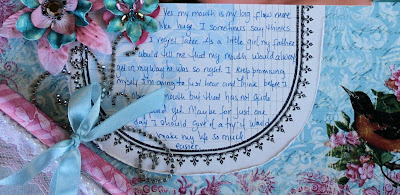 Yes my mouth is my big flaw more
like huge. I sometimes say things
I regret later. As a little girl my father
would tell me that my mouth would always
get in my way he was so right. I keep promising
myself I'm going to just hear and think before I
mouth but that has not quite
out yet. Maybe for just one
day I should give it a try it would
make my life so much
easier.